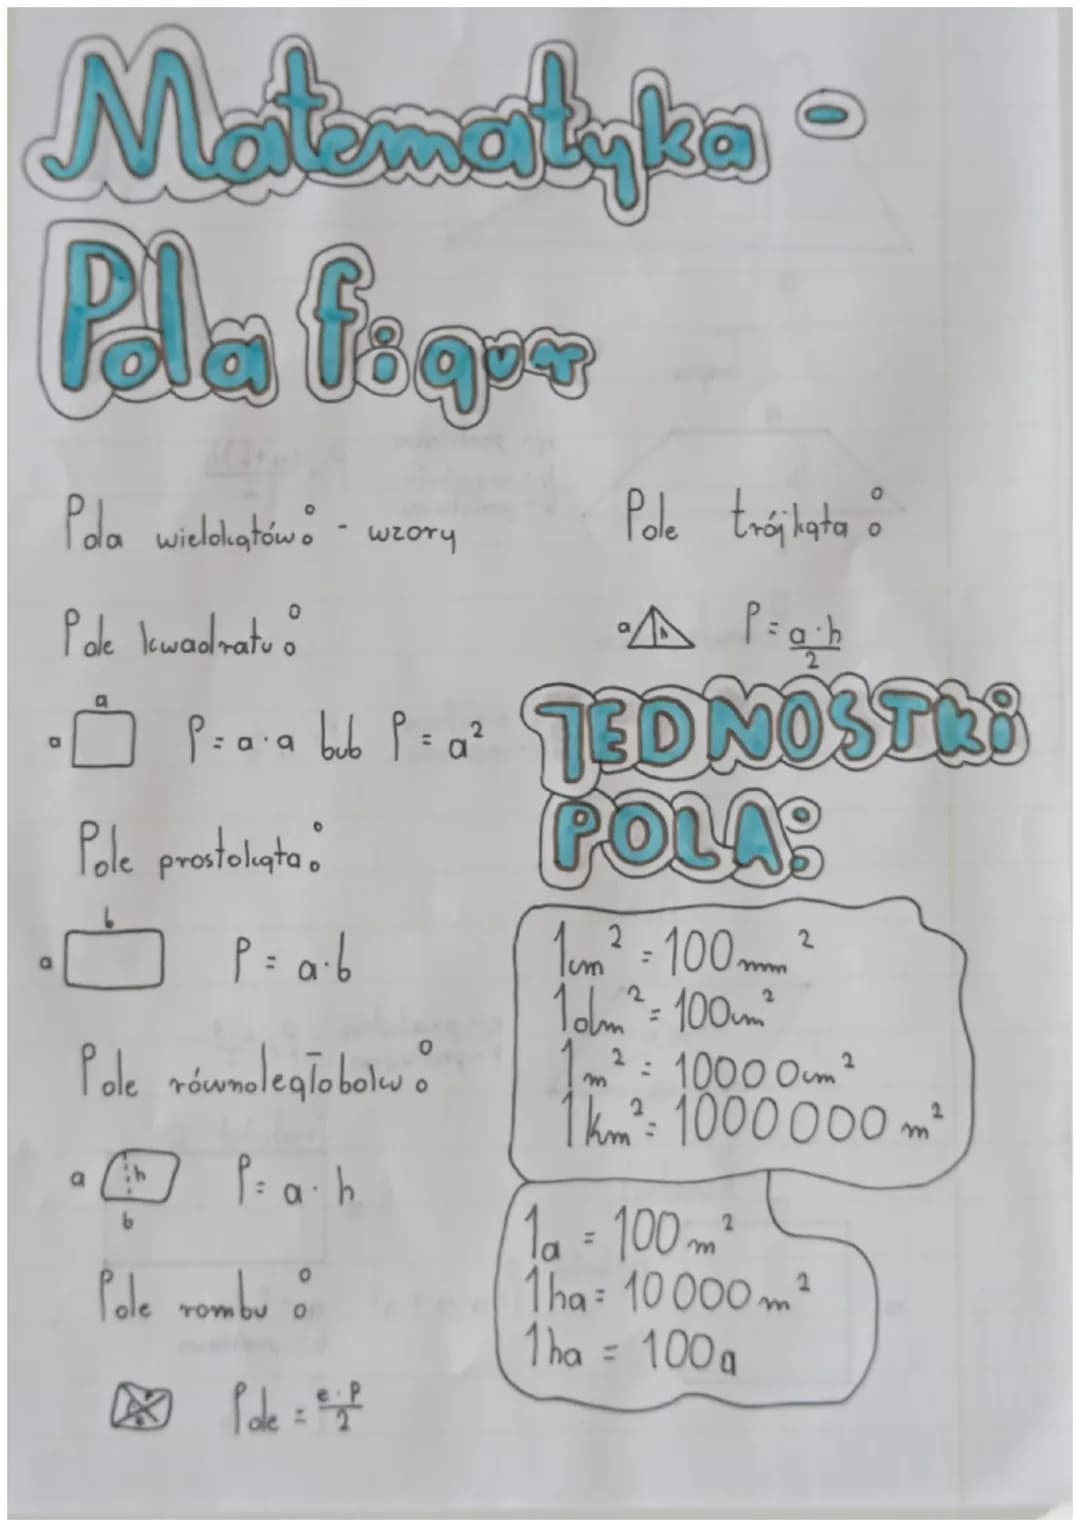 Matematyka -
Pola figur
Pola wielokątów: - wzory
Pole kwadratu:
a
a
P = a·a lub P = a²
Pole prostokąta:
b
a
P = a·b
Pole równoległoboku:
a
h
b
P = a·h
Pole rombu:
Pole = e·p/2
Pole trójkąta:
a
h
P = a·h/2
JEDNOSTKi
POLA:
1cm² = 100mm²
1dm² = 100cm²
1m² = 10000cm²
1km² = 1000000 m²
1a = 100m²
1ha = 10 000m²
1ha = 100a